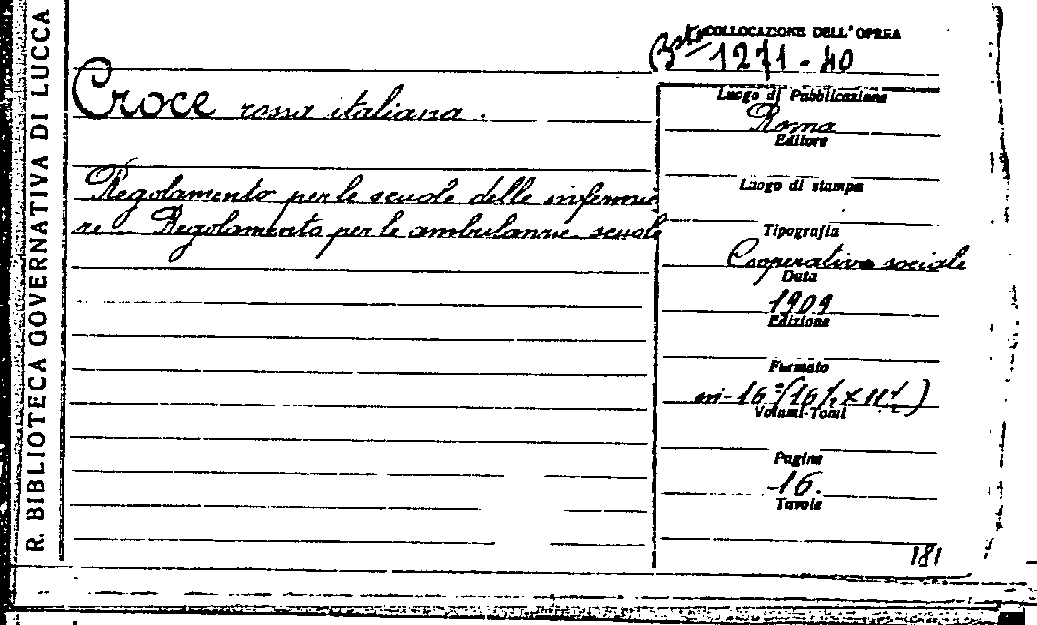 R. BIBLIOTECA GOVERNATIVA DI LUCCA
COLLOCAZIONE DELL'OPERA
Bta 1271-40
Croce rossa italiana.
Regolamento per le scuole delle infermie
re - Regolamento per le ambulanze scuole
Luogo di Pubblicazione
Roma
Editore
Luogo di stampa
Tipografia
Cooperativa sociale
Data
1909
Edizione
Formato
in-16°(16½×11½)
Volumi-Tomi
Pagine
16.
Tavole
181